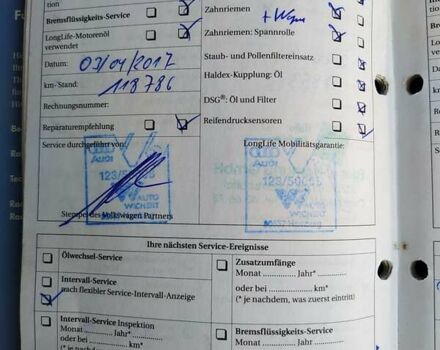 tion
Zahnriemen
Bremsflüssigkeits-Service
tion
LongLife-Motorenöl
verwendet
Zahnriemen: Spannrolle
Staub- und Pollenfiltereinsatz
Datum: 03/04/2017
Haldex-Kupplung: Öl
km-Stand: 118786
DSG®: Öl und Filter
Rechnungsnummer:
Reifendrucksensoren
Reparaturempfehlung
Service durchgeführt von:
LongLife Mobilitätsgarantie:
Audi
Audi
123/50665
123/50665
AUTO
WICHERT
AUTO
WICHERT
Stempel des Volkswagen Partners
Ihre nächsten Service-Ereignisse
Ölwechsel-Service
Zusatzumfänge
Monat ........... Jahr*...........
Intervall-Service
nach flexibler Service-Intervall-Anzeige
oder bei ...................... km*
(* je nachdem, was zuerst eintritt)
Intervall-Service Inspektion
Monat ........... Jahr*...........
oder bei ...................... km*
(* je nachdem, was
Bremsflüssigkeits-Service
Monat ........... Jahr...........